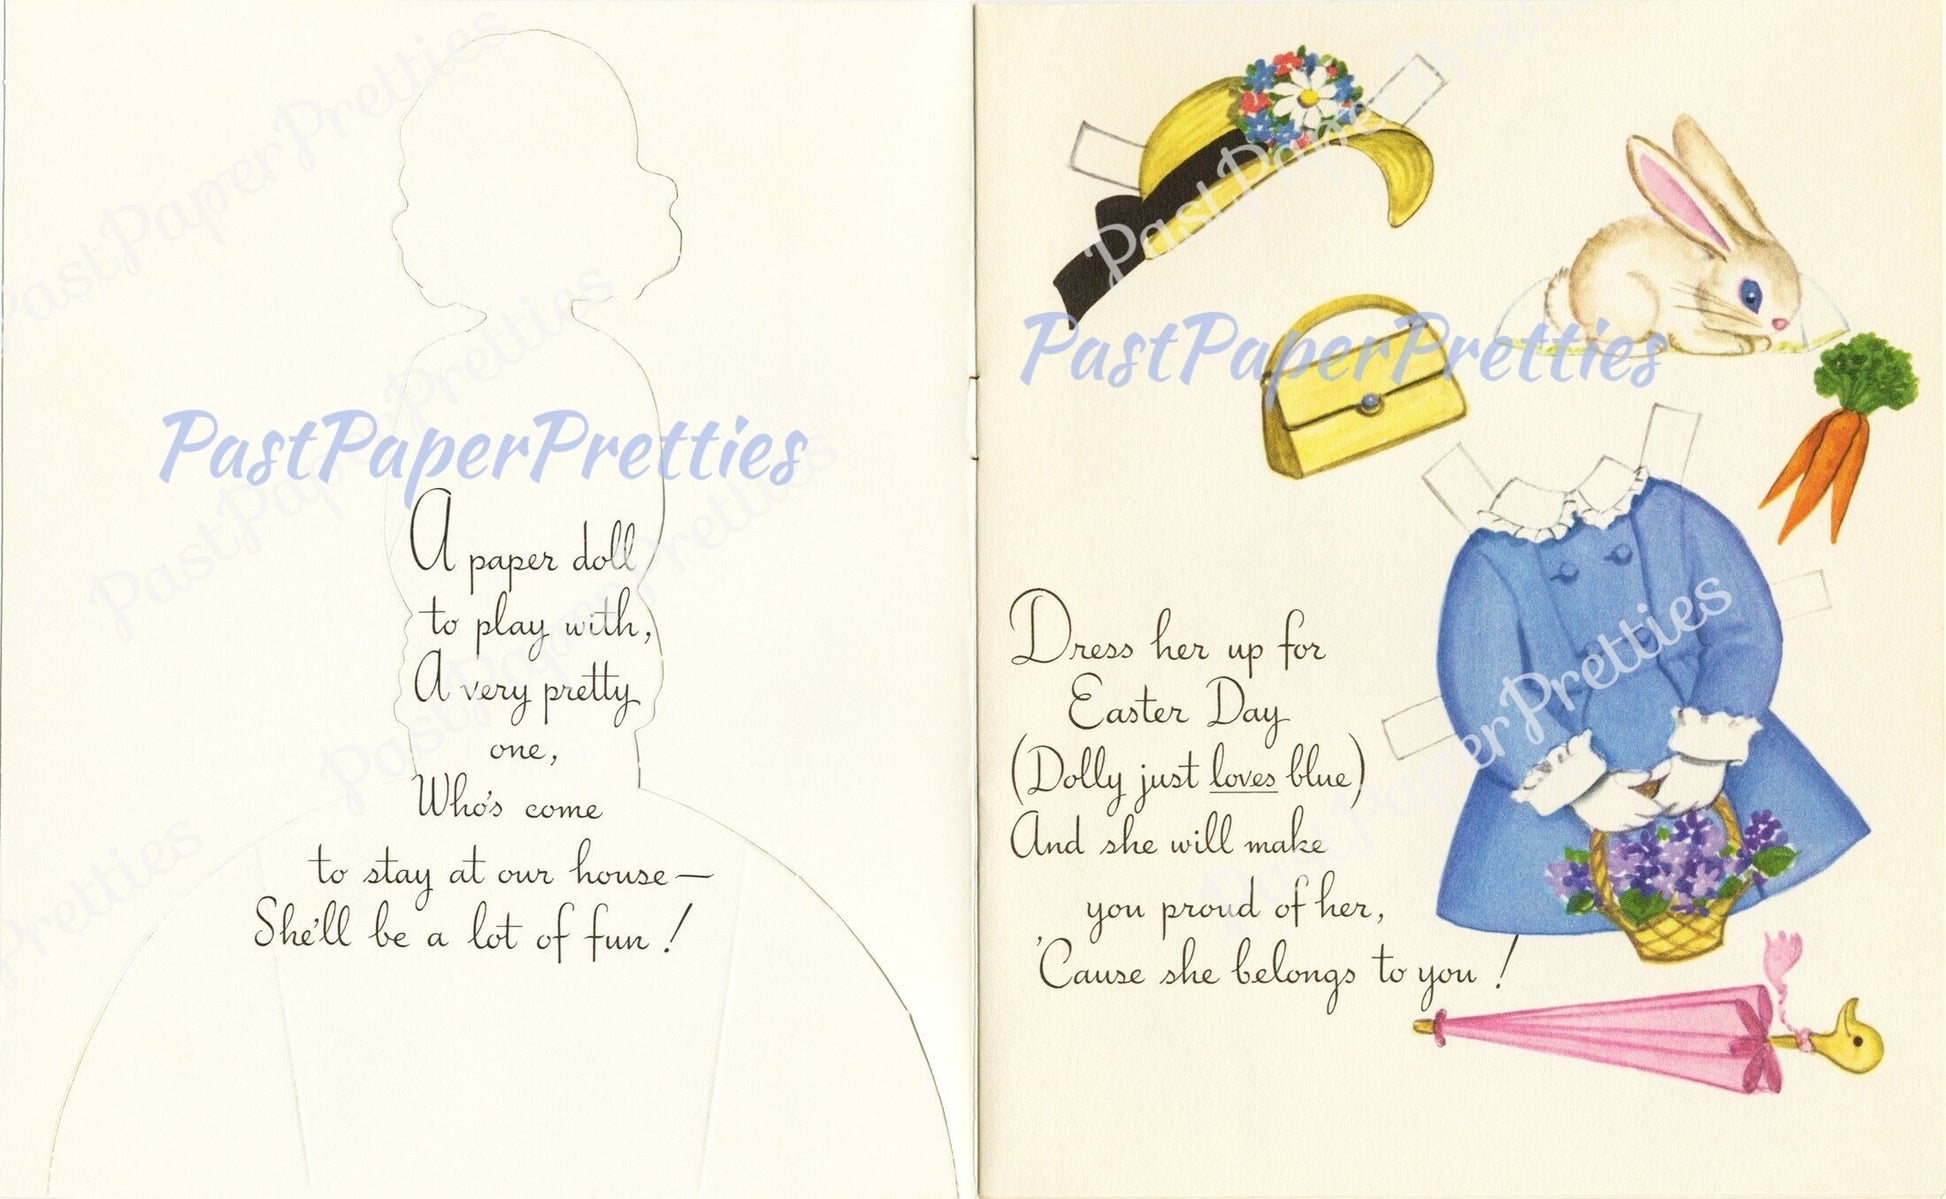 PastPaperPretties
A paper doll
to play with,
A very pretty
one,
Who's come
to stay at our house—
She'll be a lot of fun!
PastPaperPretties
Dress her up for
Easter Day
(Dolly just loves blue)
And she will make
you proud of her,
'Cause she belongs to you!
PastPaperPretties
PastPaperPretties
PastPaperPretties
PastPaperPretties